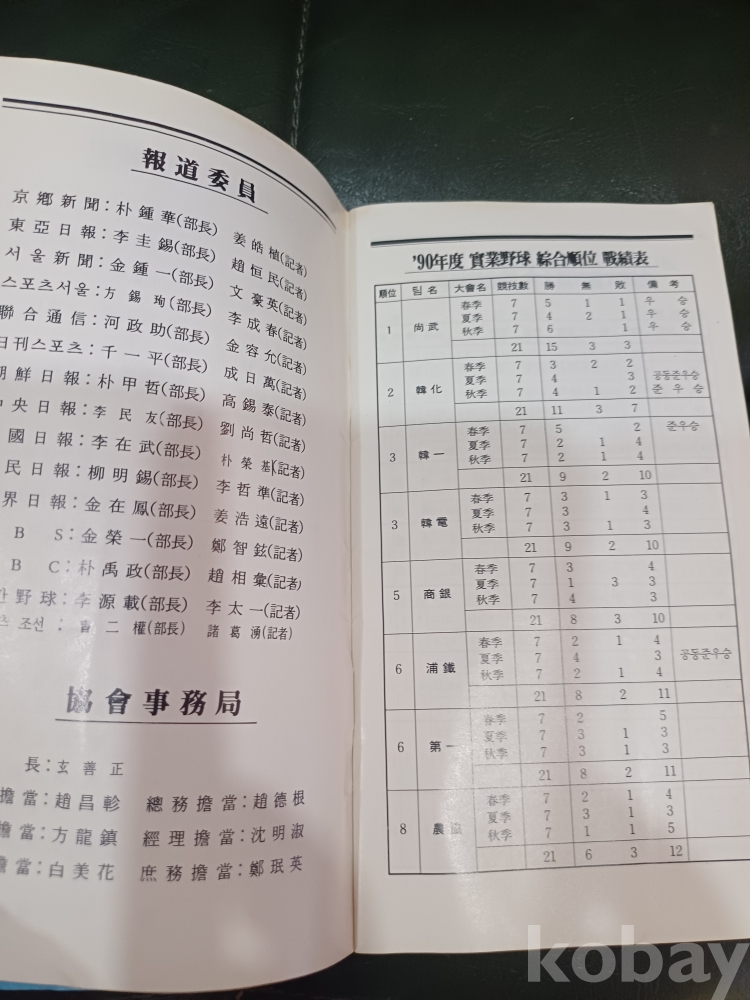 報道委員
京鄉新聞:朴鍾華(部長) 姜皓植(記者)
東亞日報:李圭錫(部長) 趙恒民(記者)
서울新聞:金鍾一(部長) 文豪英(記者)
스포츠서울:方錫珣(部長) 李成春(記者)
聯合通信:河政助(部長) 金容允(記者)
日刊스포츠:千一平(部長) 成日萬(記者)
朝鮮日報:朴甲哲(部長) 高錫泰(記者)
中央日報:李民友(部長) 劉尚哲(記者)
國日報:李在武(部長) 朴榮基(記者)
民日報:柳明錫(部長) 李哲準(記者)
界日報:金在鳳(部長) 姜浩遠(記者)
B S:金榮一(部長) 鄭智鉉(記者)
B C:朴禹政(部長) 趙相彙(記者)
野球:李源載(部長) 李太一(記者)
조선: 二權(部長) 諸葛湧(記者)
協會事務局
長:玄善正
擔當:趙昌軫 總務擔當:趙德根
擔當:方龍鎮 經理擔當:沈明淑
擔當:白美花 庶務擔當:鄭珉英
'90年度 實業野球 綜合順位 戰績表
順位 팀名 大會名 競技數 勝 無 敗 備考
1 尚武 春季 7 5 1 1 우승
夏季 7 4 2 1 우승
秋季 7 6 1 우승
21 15 3 3
2 韓化 春季 7 3 2 2
夏季 7 4 3 공동준우승
秋季 7 4 1 2 준우승
21 11 3 7
3 韓一 春季 7 5 2 준우승
夏季 7 2 1 4
秋季 7 2 1 4
21 9 2 10
3 韓電 春季 7 3 1 3
夏季 7 3 4
秋季 7 3 1 3
21 9 2 10
5 商銀 春季 7 3 4
夏季 7 1 3 3
秋季 7 4 3
21 8 3 10
6 浦鐵 春季 7 2 1 4
夏季 7 4 3 공동준우승
秋季 7 2 1 4
21 8 2 11
6 第一 春季 7 2 5
夏季 7 3 1 3
秋季 7 3 1 3
21 8 2 11
8 農 春季 7 2 1 4
夏季 7 3 1 3
秋季 7 1 1 5
21 6 3 12
kobay